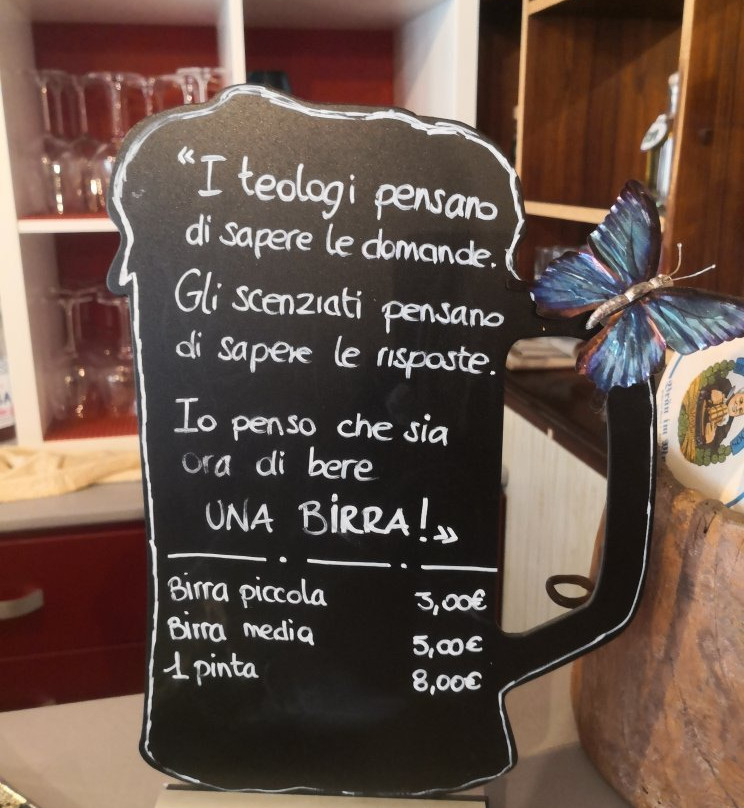 “I teologi pensano
di sapere le domande.
Gli scenziati pensano
di sapere le risposte.
Io penso che sia
ora di bere
UNA BIRRA!»
Birra piccola 3,00€
Birra media 5,00€
1 pinta 8,00€